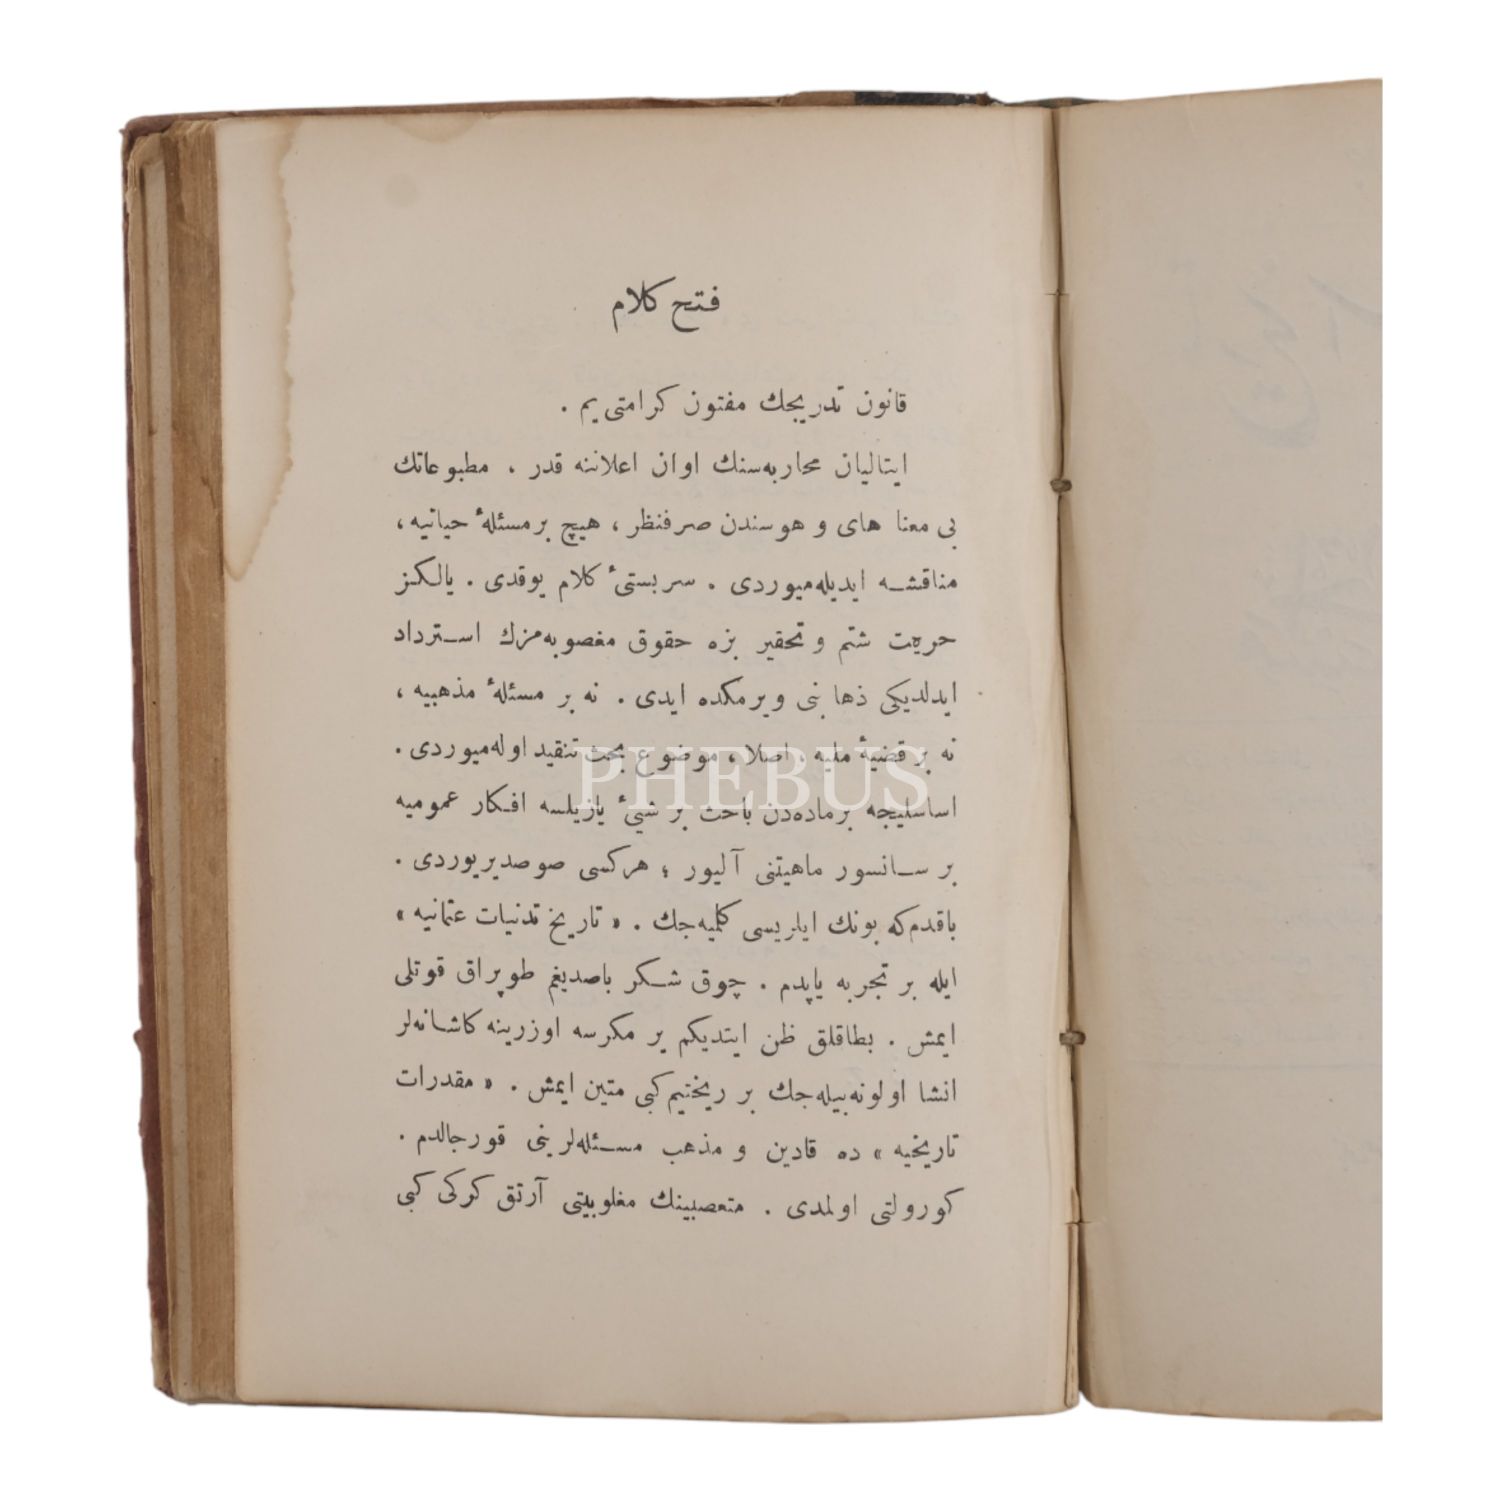 فتح كلام
قانون تدريجك مفتون كرامتى يم .
ايتاليان محاربه‌سنك اوان اعلاننه قدر . مطبوعاتك
بى معنا هاى و هوسندن صرفنظر ، هيچ بر مسئلهٔ حياتيه ،
مناقشه ايديله‌ميوردى . سربستىٔ كلام يوقدى . يالكز
حريت شتم و تحقير بزه حقوق مغصوبه‌مزك استرداد
ايدلديكى ذهابنى ويرمكده ايدى . نه بر مسئلهٔ مذهبيه ،
نه بر قضيهٔ مليه ، اصلا ، موضوع بحث تنقيد اوله‌ميوردى .
PHEBUS
اساسليجه بر ماده‌دن باحث بر شيئ يازيلسه افكار عموميه
بر سانسور ماهيتنى آليور ؛ هركسى صوصديريوردى .
باقدم كه بونك ايلريسى كلميه‌جك . « تاريخ تدنيات عثمانيه »
ايله بر تجربه ياپدم . چوق شكر باصديغم طوپراق قوتلى
ايمش . بطاقلق ظن ايتديكم ير مكرسه اوزرينه كاشانه‌لر
انشا اولونه‌بيله‌جك بر ريختيم كبى متين ايمش . « مقدرات
تاريخيه » ده قادين و مذهب مسئله‌لرينى قورجالدم .
كورولتى اولمدى . متعصبينك مغلوبيتى آرتق كركى كبى